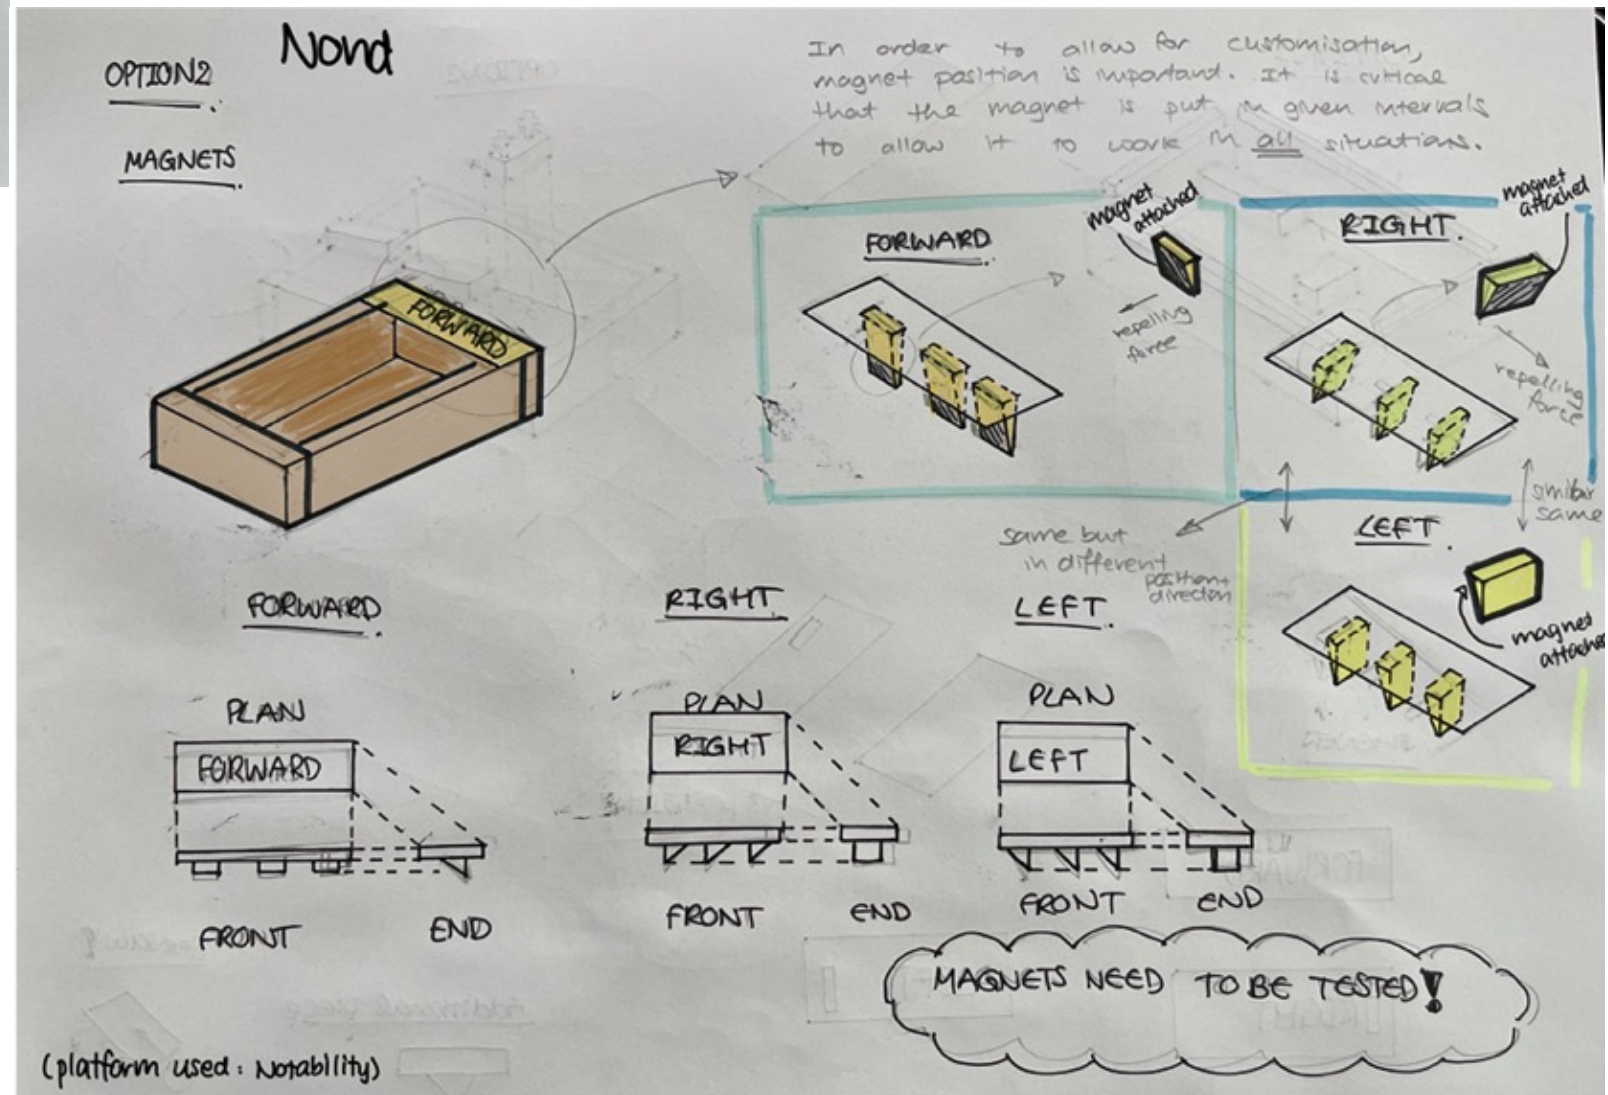 OPTION2
Nond
MAGNETS
In order to allow for customisation,
magnet position is important. It is critical
that the magnet is put in given intervals
to allow it to work in all situations.
FORWARD
FORWARD
magnet
attached
repelling
force
RIGHT
magnet
attached
repelling
force
same but
in different
position+
direction
similar
same
LEFT
magnet
attached
FORWARD
PLAN
FORWARD
FRONT
END
RIGHT
PLAN
RIGHT
FRONT
END
LEFT
PLAN
LEFT
FRONT
END
MAGNETS NEED TO BE TESTED!
(platform used: Notability)